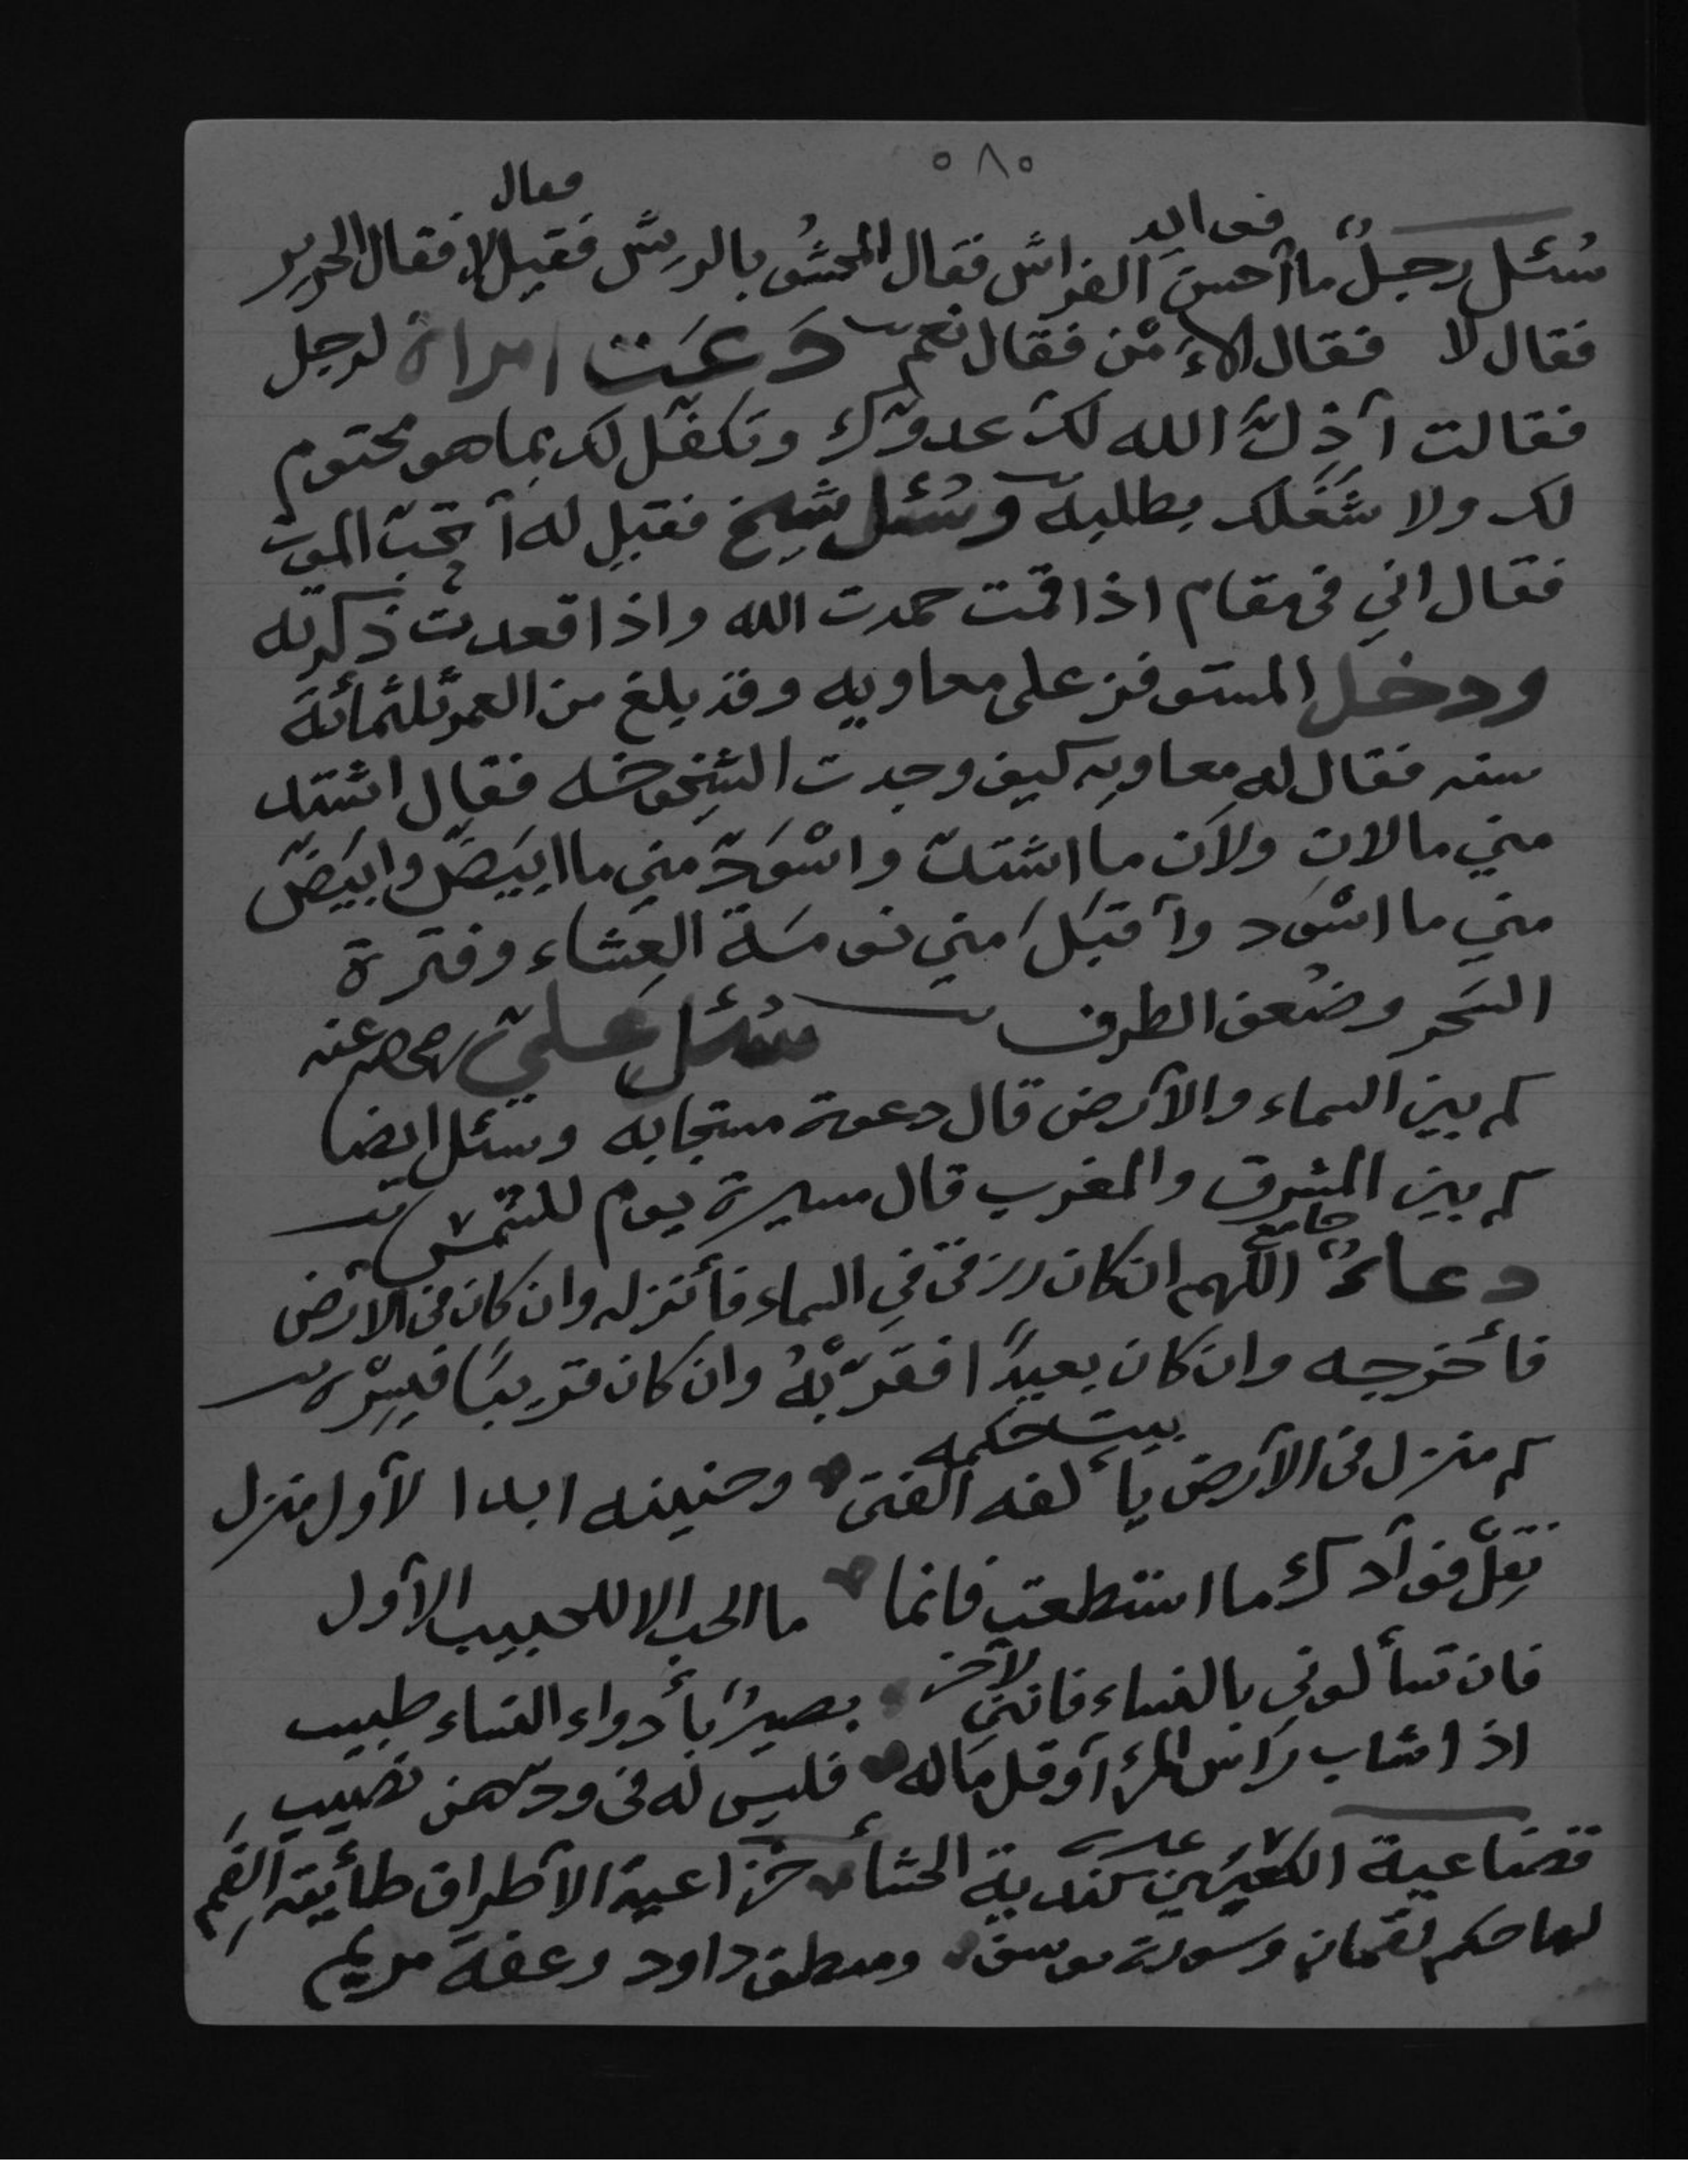 ٠٨٠
فوايد
فقال
سُئل رجلٌ ما أحسن الفراش فقال المحشُو بالريش فقيل لا فقال الحرير
فقال لا فقال الاءَمْن فقال نعم دَعَت امراة لرجل
فقالت أذلَّ الله لك عدوّك وتكفّل لك بما هو محتوم
لك ولا شَغَلك بطلبه وسُئل شيخ فقيل له أتحبّ الموت
فقال اني في مقام اذا قمت حمدت الله واذا قعدت ذكرته
ودخل المستوفز على معاويه وقد بلغ من العمر ثلثمائة
سنه فقال له معاويه كيف وجدت الشيخوخه فقال اشتد
مني ما لان ولاَن ما اشتدّ واسْوَدّ مني ما ابيَضّ وابيَضّ
مني ما اسْوَد وأقبَلَ مني نومسَة العِشاء وفترة
السَحر وضُعف الطرف سُئل عليّ رضي الله عنه
كم بين السماء والأرض قال دعوة مستجابه وسئل ايضا
كم بين المشرق والمغرب قال مسيرة يوم للشمس
جامع
دعاءٌ اللهم ان كان رزقي في السماء فأنزله وان كان في الارض
فأخرجه وان كان بعيدًا فقرّبْهُ وان كان قريبًا فيسِّرْه
بيت حكمه
كم منزل في الأرض يألفه الفتى وحنينه ابدا لأول منزل
نقّل فوآدك ما استطعت فانما ما الحب الا للحبيب الأول
لآخر
فان تسألوني بالنساء فانني بصيرٌ بأدواء النساء طبيب
اذا شاب رَاس المرأ أو قل مَاله فليس له في ودّهن نصيب
قضاعية الكعبين كندية الحشأ خزاعية الأطراف طأئية الفم
لها حكم لقمان وسورة يوسف ومنطق داود وعفة مريم